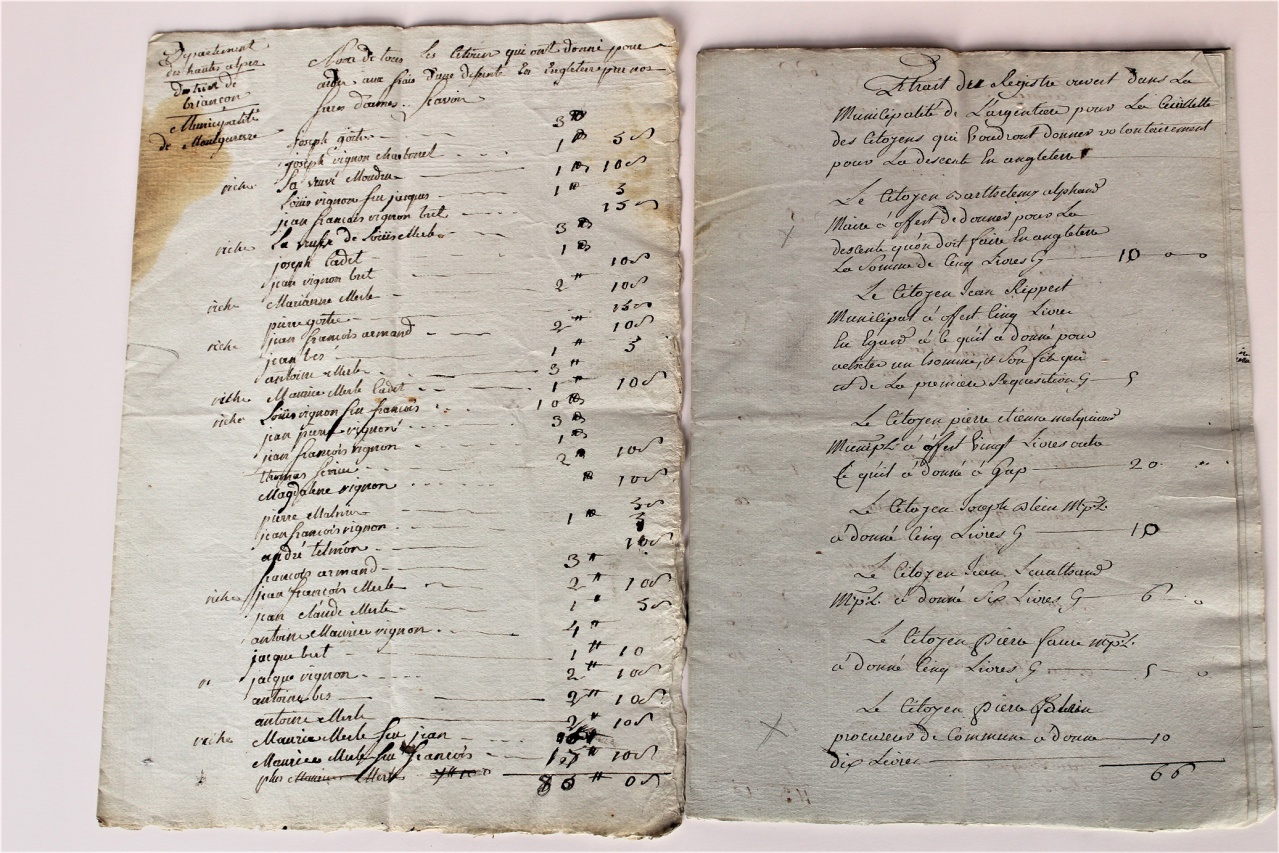 Département
des hautes alpes
district de
briançon
Municipalité
de Montgenevre
Note de tous les Citoien qui ont donné pour
aider aux frais d'une desente En Engleterre
Savoir
3 ₶
joseph gotie 1 ₶ 5 s
joseph vignon charbonel 1 ₶ 10 s
riche La veuve Moudru 1 ₶ 5
Louis vignon feu jacques 15 s
jean françois vignon bret 3 ₶
riche La veuve de Louis Merle 1 ₶
joseph Cadet 10 s
jean vignon bret 2 ₶ 10 s
riche Marianne Merle
pierre gotie 2 ₶ 10 s
riche jean françois armand 5
jean bes 1 ₶
antoine Merle 3 ₶
riche Maurice Merle Cadet 1 ₶ 10 s
riche Louis vignon feu françois 10 ₶
jean pierre vignon 3 ₶
jean françois vignon 1 ₶
thomas 2 ₶ 10 s
Magdalene vignon 10 s
pierre 5 s
jean françois vignon 1 ₶
andré telmon 10 s
françois armand 3 ₶
riche jean françois Merle 2 ₶ 10 s
jean Claude Merle 1 ₶ 5 s
antoine Maurice vignon 4 ₶
jacque bret 1 ₶ 10
jacque vignon 2 ₶ 10 s
antoine bes 2 ₶ 10 s
antoine Merle 2 ₶ 10 s
riche Maurice Merle feu jean
Maurice Merle feu françois 10 s
plus Merle 0 s
Extrait du Registre ouvert dans La
Municipalité de L'argentiere pour La Ceuillette
des Citoyens qui Voudront donner volontairement
pour La descent En angleterre
Le Citoyen Barthelemy alphand
Maire à offert de donner pour La
descente qu'on doit faire En angleterre
La Somme de Cinq Livres 10
Le Citoyen Jean Rippert
Municipal à offert Cinq Livres
En Egard à ce qu'il à donné pour
acheter un homme, et Son fils qui
est de La premiere Requisition 5
Le Citoyen pierre etienne
Municipl. à offert Vingt Livres outre
Ce qu'il à donné à Gap 20
Le Citoyen Joseph Mpl.
à donné Cinq Livres 10
Le Citoyen Jean
Mpl. à donné Six Livres 6
Le Citoyen pierre faure mpl.
à donné Cinq Livres 5
Le Citoyen pierre
procureur de Commune à donné 10
dix Livres
66